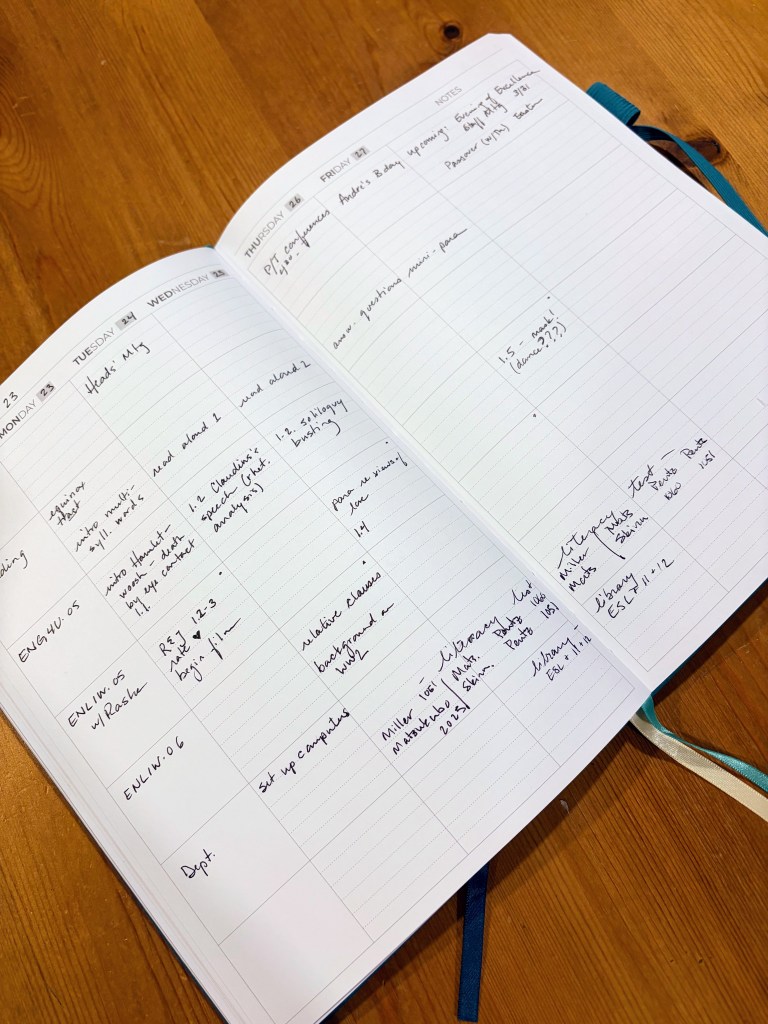 23
MONDAY 23
TUESDAY 24
Heads' Mtg
WEDNESDAY 25
THURSDAY 26
P/T conferences
FRIDAY 27
Andre's Bday
NOTES
upcoming: Evening of Excellence
Staff Mtg 3/31
Passover (w/Th)
equinox
intro multi-
syll. words
read aloud 1
read aloud 2
answ. questions
mini-para
ENG4U.05
intro Hamlet –
woosh – death
by eye contact
1.1.
1.2 Claudius's
speech (rhet.
analysis)
1.2. Soliloquy
busting
1.5 – mark!
(dance???)
ENL1W.05
w/Rasha
R & J 1.2-3
rate ♥
begin film
1.4
ENL1W.06
relative clauses
background on
WW2
literacy test –
Miller
Mats
Mats
Pentz
1060
Pentz
1051
Dept.
set up computers
Miller 1051
2025
literacy test
Mats.
Pentz 1060
Pentz 1051
library –
ESL + 11 + 12
library
ESL + 11 + 12